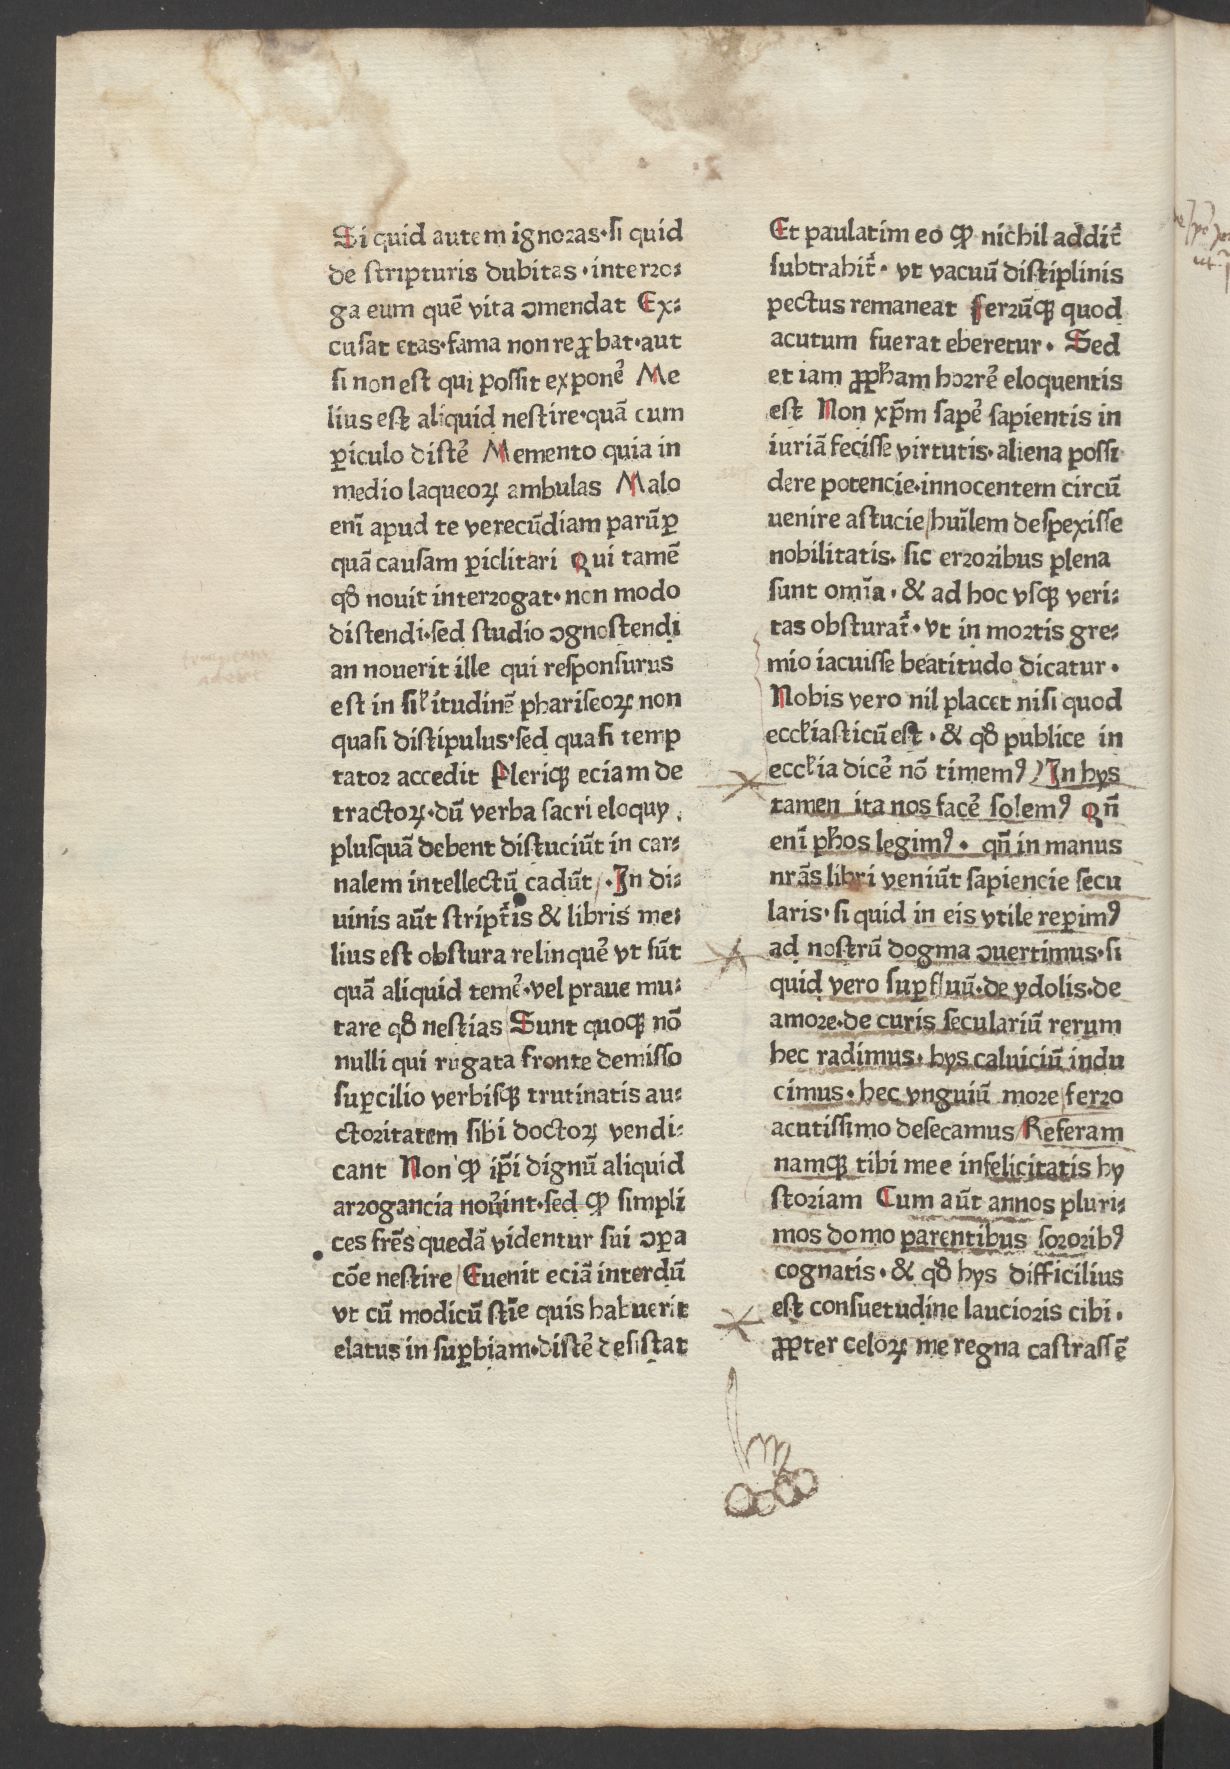 Si quid autem ignoras·si quid
de scripturis dubitas·interro⸗
ga eum quē vita ɔmendat Ex⸗
cusat etas·fama non reꝓbat·aut
si non est qui possit exponē Me
lius est aliquid nescire·quā cum
ꝑiculo discē Memento quia in
medio laqueoꝝ ambulas Malo
enī apud te verecūdiam parūꝑ
quā causam ꝑiclitari Qui tamē
qđ nouit interrogat·non modo
discendi·sed studio ɔgnoscendi
an nouerit ille qui responsurus
est in siꝉitudinē phariseoꝝ non
quasi discipulus·sed quasi temp
tator accedit Pleriqꝫ eciam de
tractoꝝ·dū verba sacri eloquy
plusquā debent discuciūt in car⸗
nalem intellectū cadūt·In di⸗
uinis aūt script̄is & libris me⸗
lius est obscura relinquē vt sūt
quā aliquid temē·vel praue mu⸗
tare qđ nescias Sunt quoqꝫ nō
nulli qui rugata fronte demisso
suꝑcilio verbisqꝫ trutinatis au⸗
ctoritatem sibi doctoꝝ vendi⸗
cant Non ꝙ ip̄i dignū aliquid
arrogancia nouīnt·sed ꝙ simpli
ces frēs quedā videntur sui ɔꝑa
cōe nescire Euenit eciā interdū
vt cū modicū scīe quis habuerit
elatus in suꝑbiam·discē desistat
Et paulatim eo ꝙ nichil addit᷑
subtrahit᷑· vt vacuū disciplinis
pectus remaneat ferrūqꝫ quod
acutum fuerat eberetur· Sed
et iam ꝓpħam horrē eloquentis
est Non xp̄m sapē sapientis in
iuriā fecisse virtutis·aliena possi
dere potencie·innocentem circū
uenire astucie huīlem despexisse
nobilitatis· sic erroribus plena
sunt omīa·& ad hoc vsqꝫ veri⸗
tas obscurat᷑·vt in mortis gre⸗
mio iacuisse beatitudo dicatur·
Nobis vero nil placet nisi quod
eccꝉiasticū est·& qđ publice in
eccꝉia dicē nō timemꝰ In hys
tamen ita nos facē solemꝰ Qn̄
enī pħos legimꝰ· qn̄ in manus
nrās libri veniūt sapiencie secu
laris·si quid in eis vtile reꝑimꝰ
ad nostrū dogma ɔuertimus·si
quid vero suꝑfluū·de ydolis·de
amore·de curis seculariū rerum
hec radimus·hys caluiciū indu
cimus·hec vnguiū more ferro
acutissimo desecamus Referam
namqꝫ tibi mee infelicitatis hy
storiam Cum aūt annos pluri⸗
mos domo parentibus sororibꝰ
cognatis·& qđ hys difficilius
est consuetudine laucioris cibi·
ꝓpter celoꝝ me regna castrassē